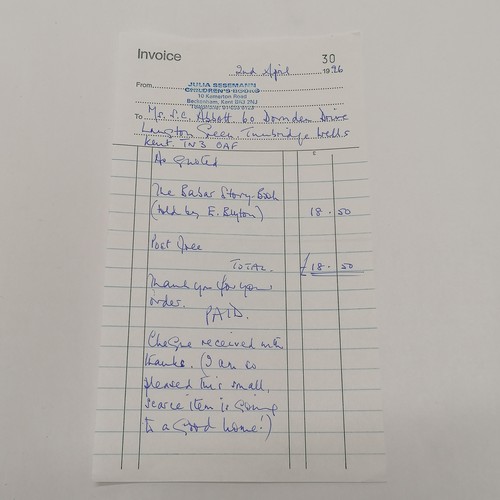 Invoice
30
2nd April 1996
From JULIA SESEMANN
CHILDREN'S BOOKS
10 Kemerton Road
Beckenham, Kent BR3 2NJ
To Mr. S.C. Abbott 60 Dornden Drive
Langton Green, Tunbridge Wells
Kent. TN3 0AF
£
As quoted
The Babar Story-Book
(told by E. Blyton) 18 . 50
Post free
TOTAL. £18 . 50
Thank you for your
order.
PAID.
Cheque received with
thanks. (I am so
pleased this small,
scarce item is going
to a good home!)